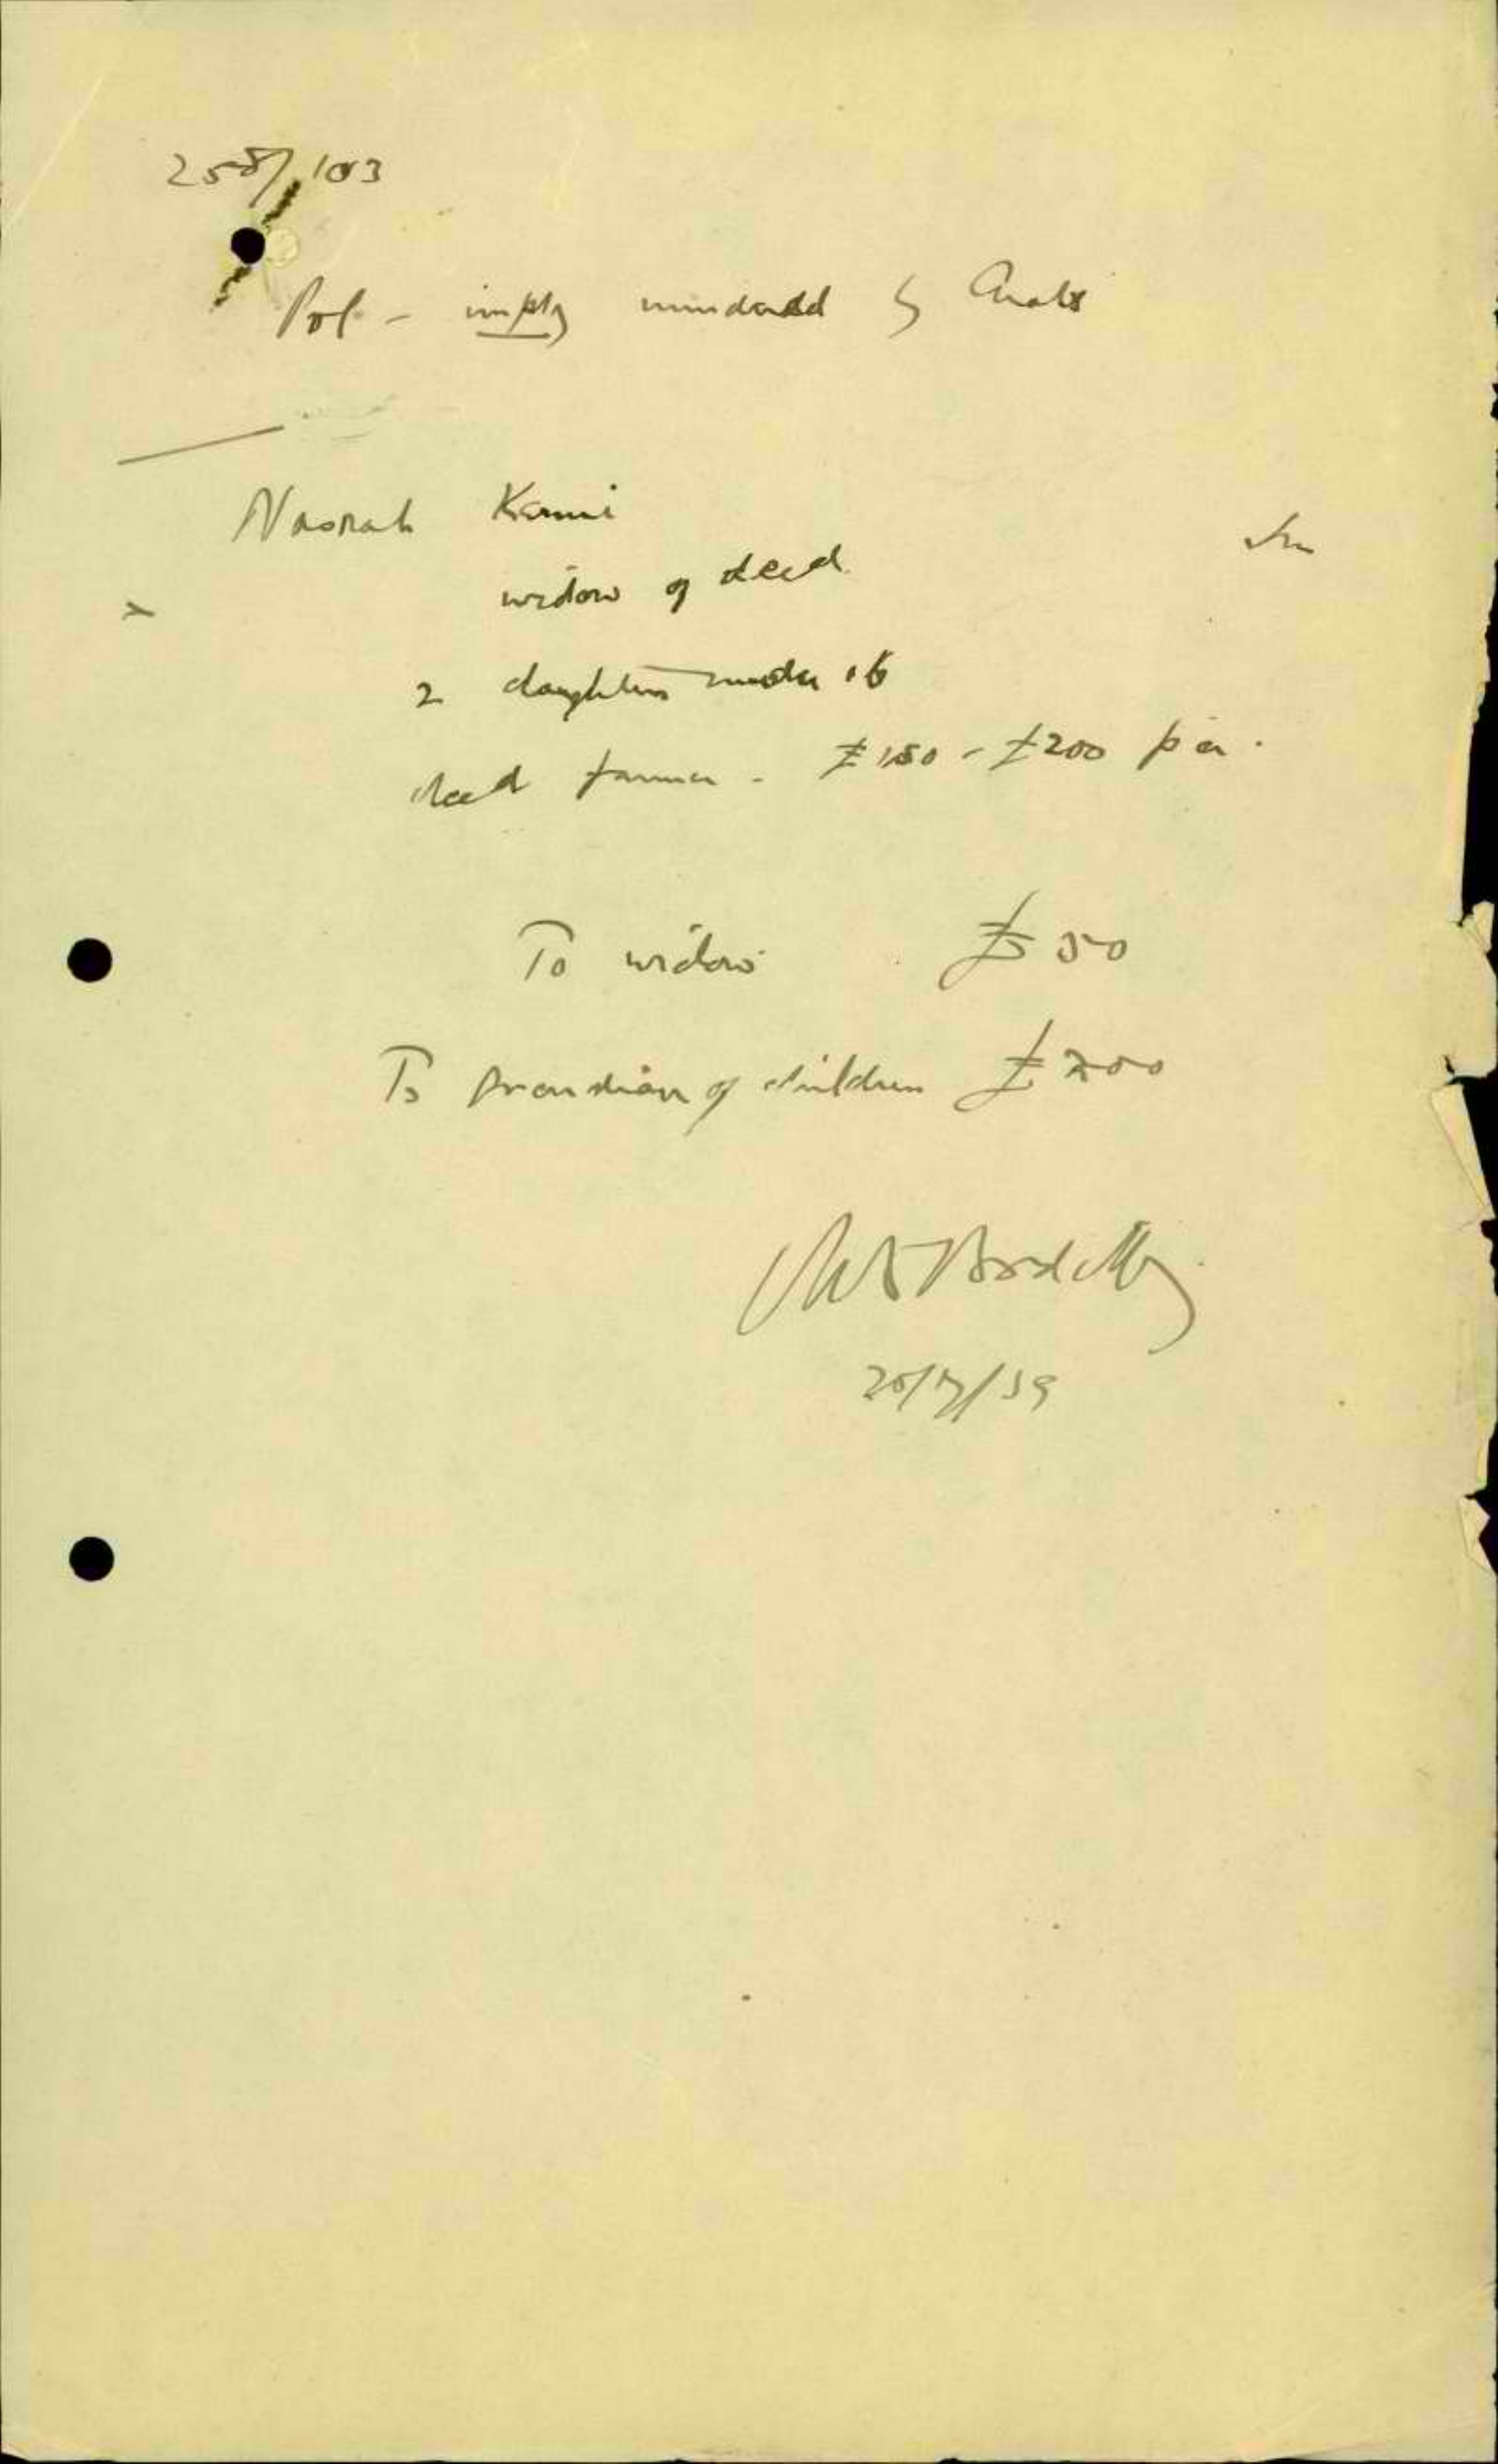 258/103
Pol - imply murdered by Arabs
Kanni
widow of deed
2 daughters under 16
deed farmer - £150 - £200 p a.
To widow £50
To guardian of children £200
20/7/39